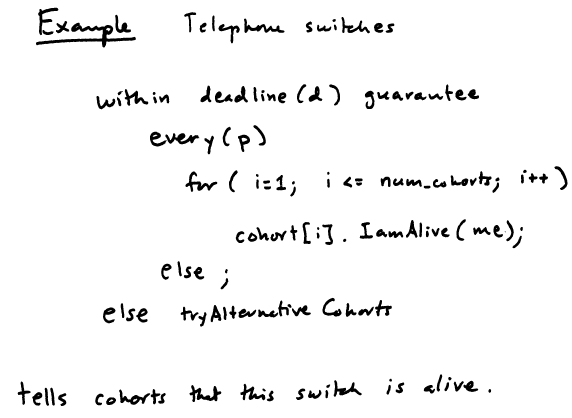 Example Telephone switches
within deadline (d) guarantee
every (p)
for ( i=1; i <= num_cohorts; i++ )
cohort[i]. IamAlive (me);
else ;
else tryAlternative Cohorts
tells cohorts that this switch is alive.